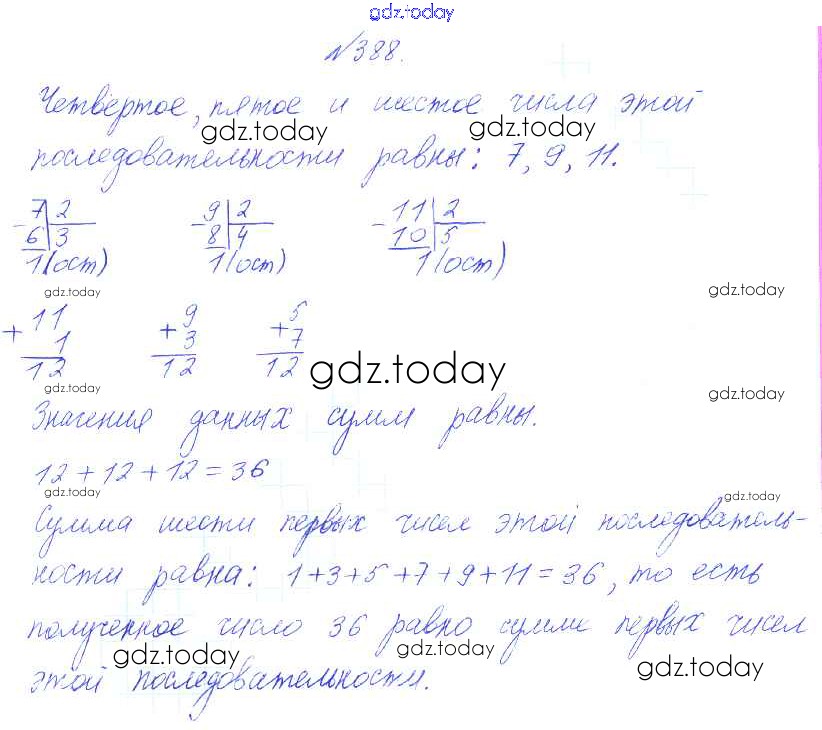 gdz.today
№388.
Четвёртое, пятое и шестое числа этой
gdz.today gdz.today
последовательности равны: 7, 9, 11.
- 7 | 2 - 9 | 2 - 11 | 2
6 | 3 8 | 4 10 | 5
1(ост) 1(ост) 1(ост)
gdz.today gdz.today
+ 11 + 9 + 5
1 3 7
12 12 12
gdz.today gdz.today gdz.today
Значения данных сумм равны.
12 + 12 + 12 = 36
gdz.today gdz.today
Сумма шести первых чисел этой последователь-
ности равна: 1+3+5+7+9+11=36, то есть
полученное число 36 равно сумме первых чисел
gdz.today gdz.today gdz.today
этой последовательности.